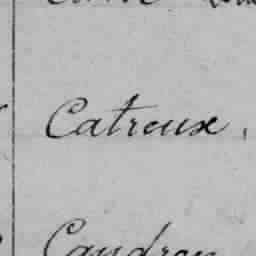 Catreux.
Caudron